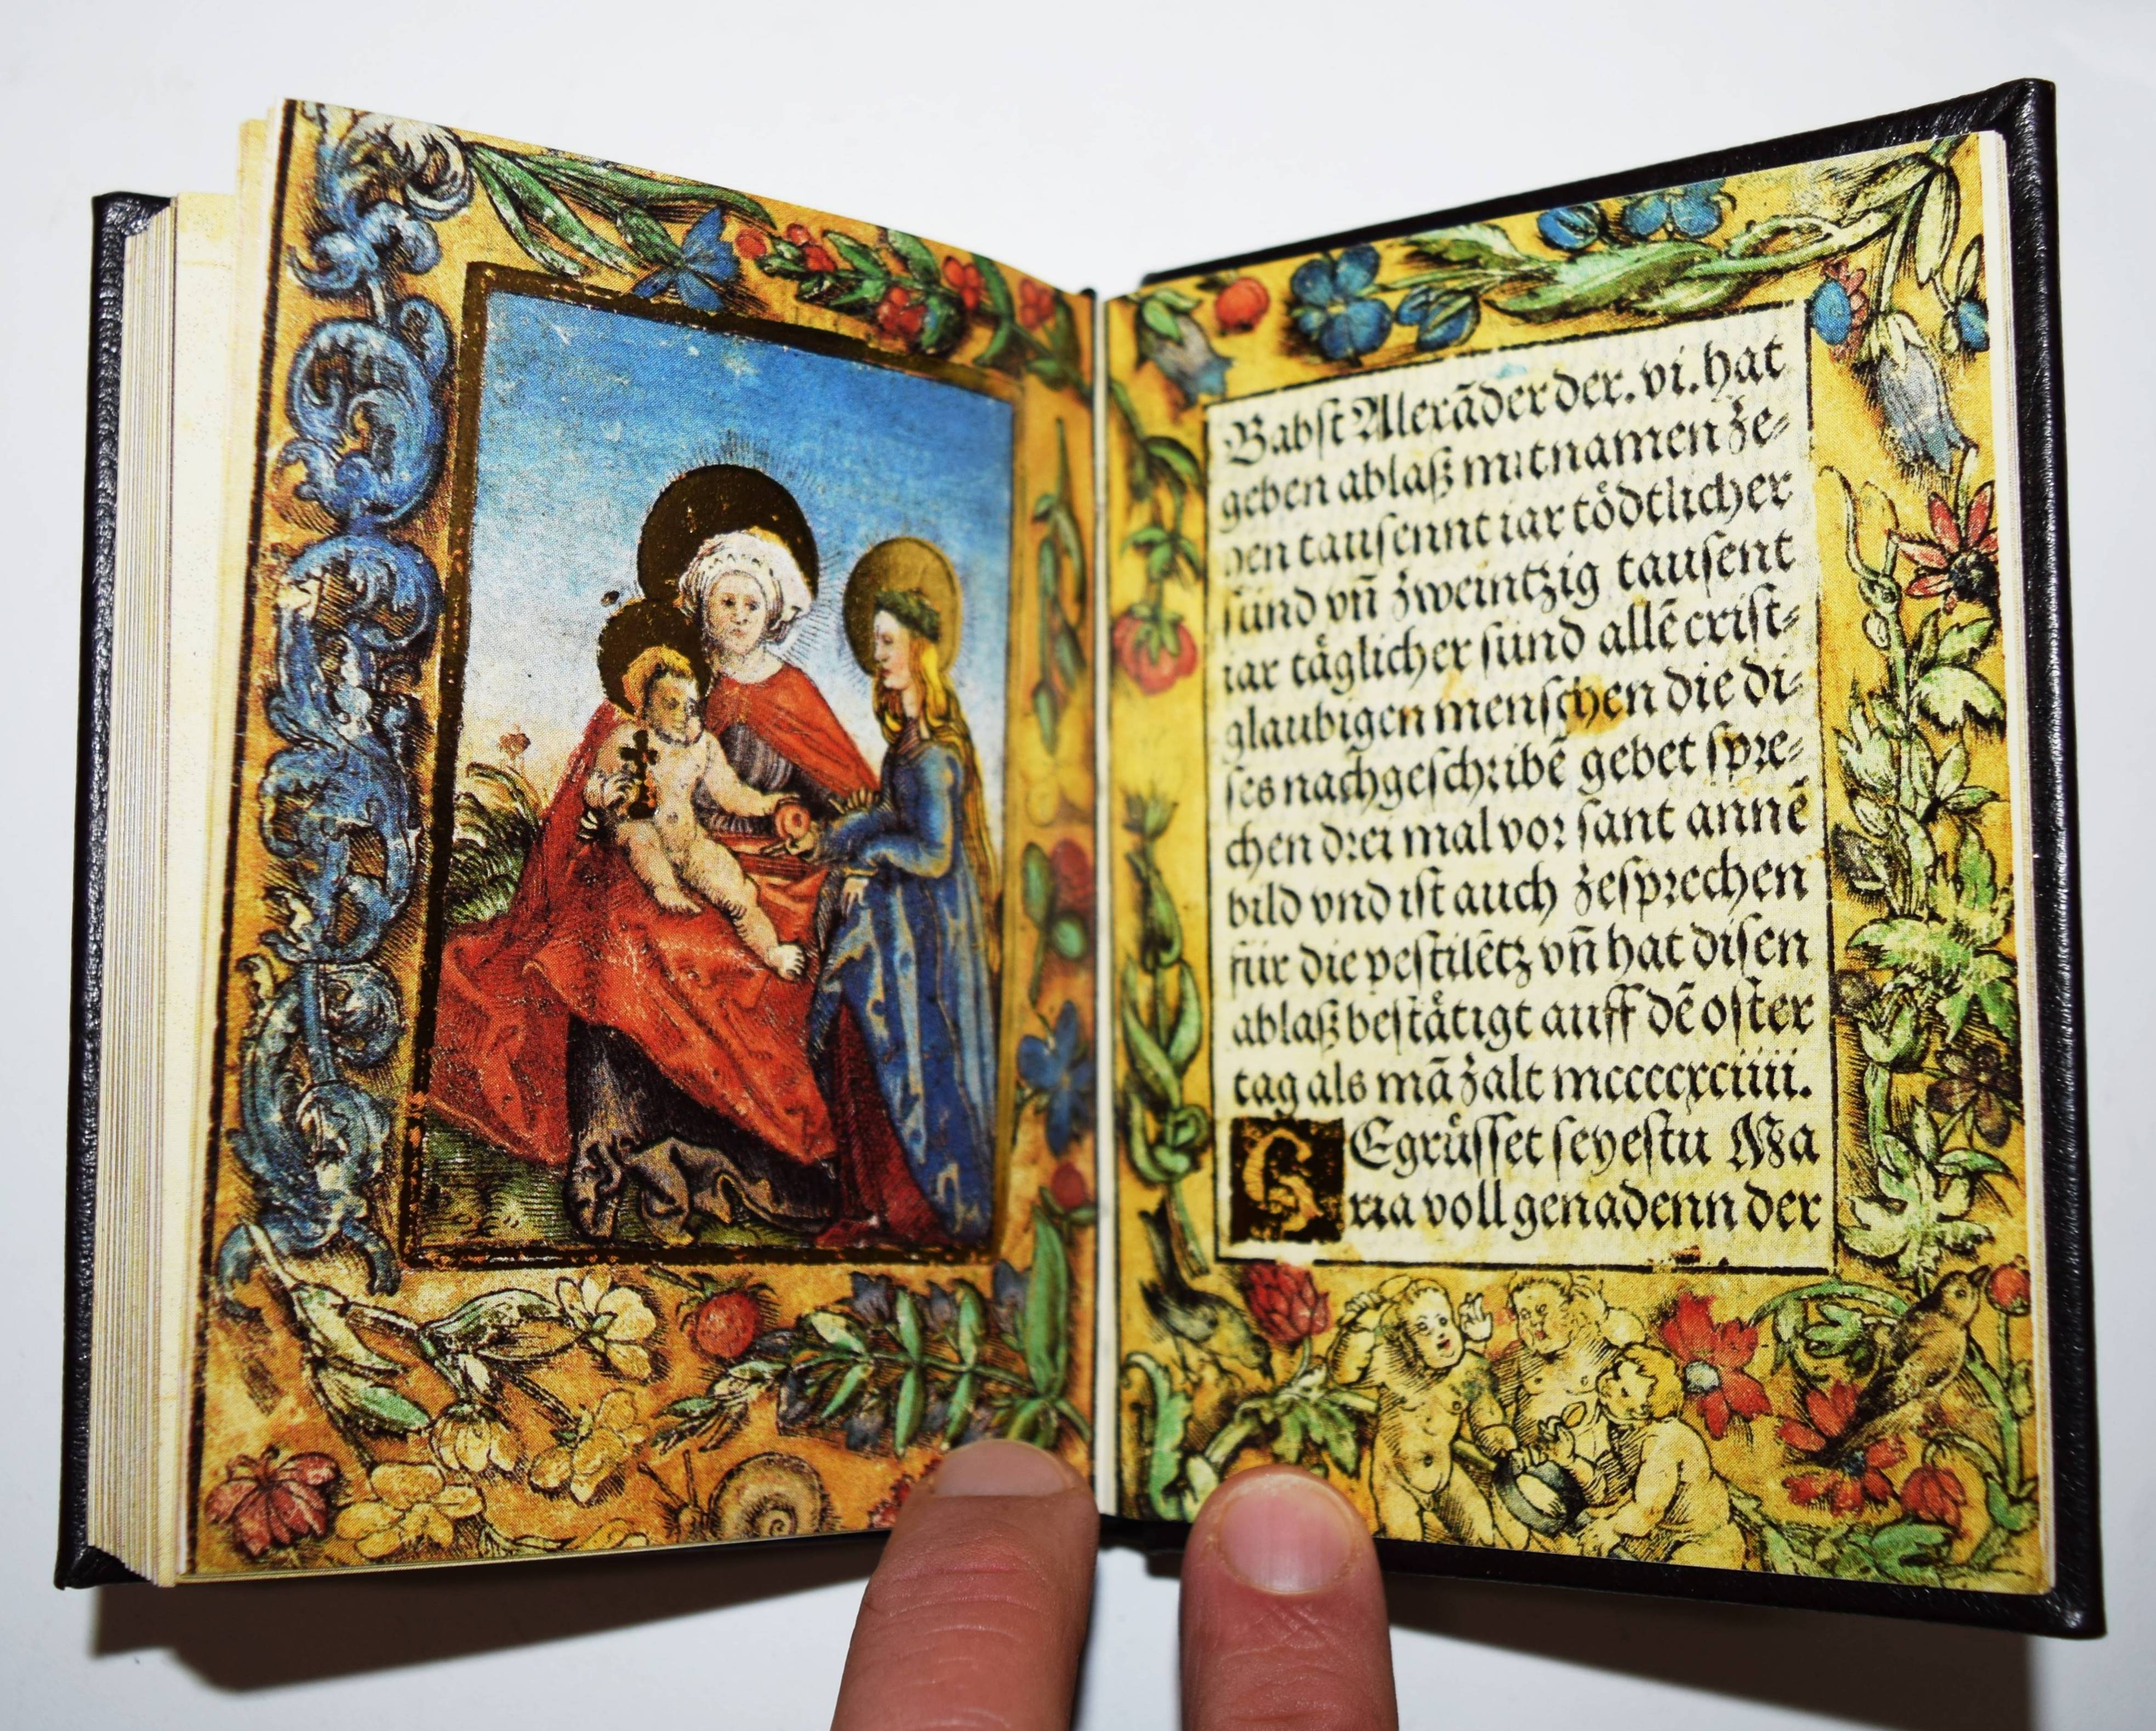 Babſt Alexãder der. vi. hat
geben ablaß mit namen ze⸗
hen tauſennt iar toͤdtlicher
ſünd vñ zweintzig tauſent
iar täglicher ſünd allẽ criſt⸗
glaubigen menſchen die di⸗
ſes nachgeſchribẽ gebet ſpre⸗
chen drei mal vor ſant annẽ
bild vnd iſt auch zeſprechen
für die peſtilẽtz vñ hat diſen
ablaß beſtåtigt auff dẽ oſter
tag als mã zalt mccccxciiii.
GEgruͤſſet ſeyeſtu Ma
ria voll genadenn der